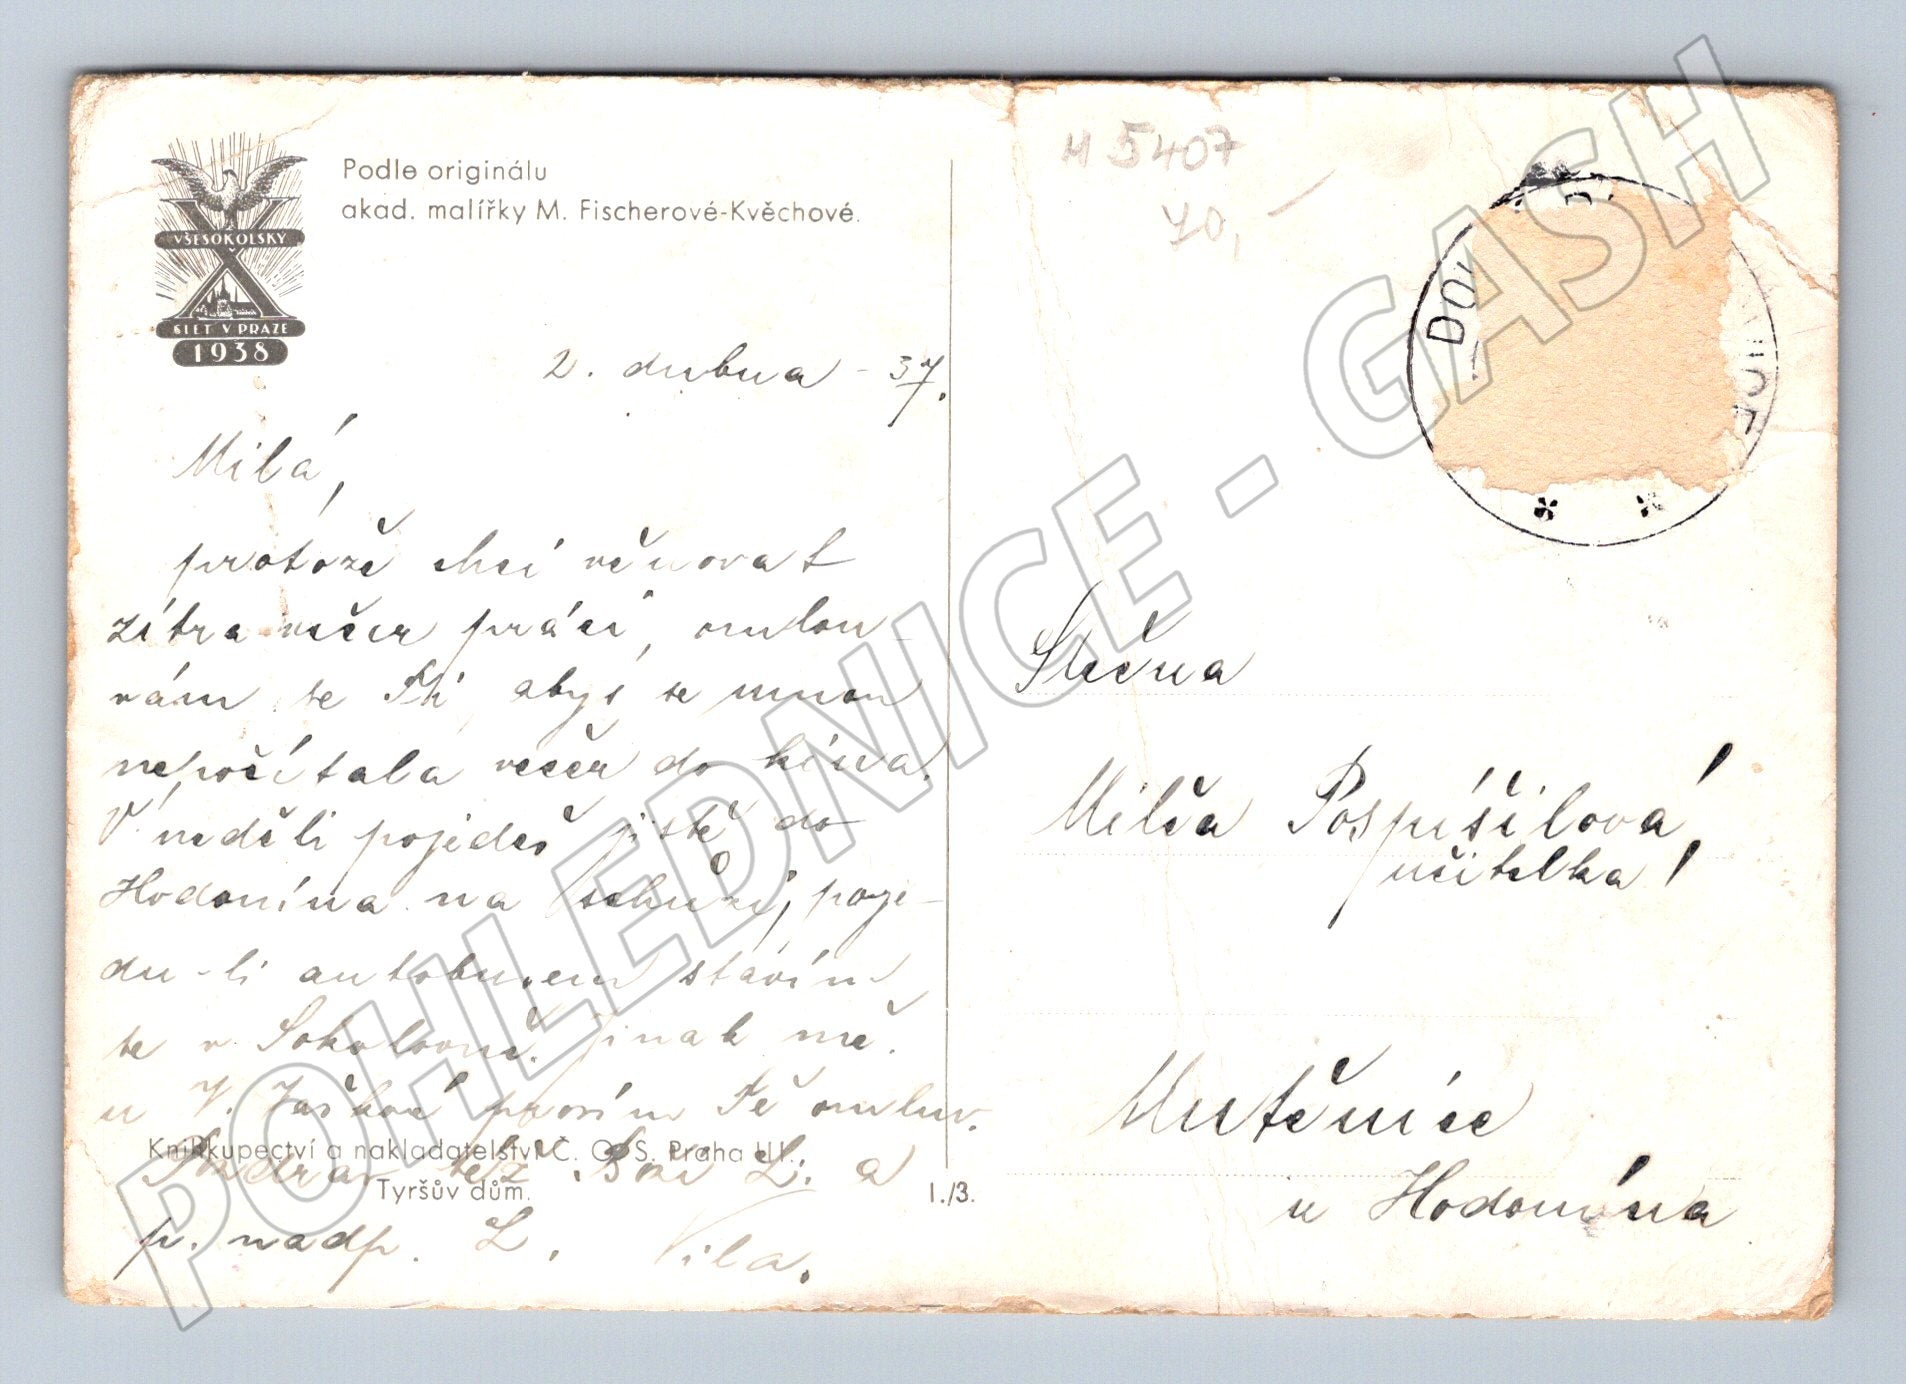 VŠESOKOLSKÝ
X
SLET V PRAZE
1938
Podle originálu
akad. malířky M. Fischerové-Kvěchové.
M 5407
70,
2. dubna - 37.
Milá,
protože chci věnovat
zítra večer práci, omlou-
vám se Ti abys se mnou
nepočítala večer do kina.
V neděli pojedeš jistě do
Hodonína na schůzi, poje-
du-li autobusem stavím
se v Sokolovně. Jinak mě
u J. prosím Tě omluv.
Knihkupectví a nakladatelství Č. O. S. Praha III.
Tyršův dům.
1./3.
Pozdrav též L. a
p. nadp. L. Vila.
Slečna
Milča Pospíšilová,
učitelka!
Mutěnice
u Hodonína
POHLEDNICE - GASH